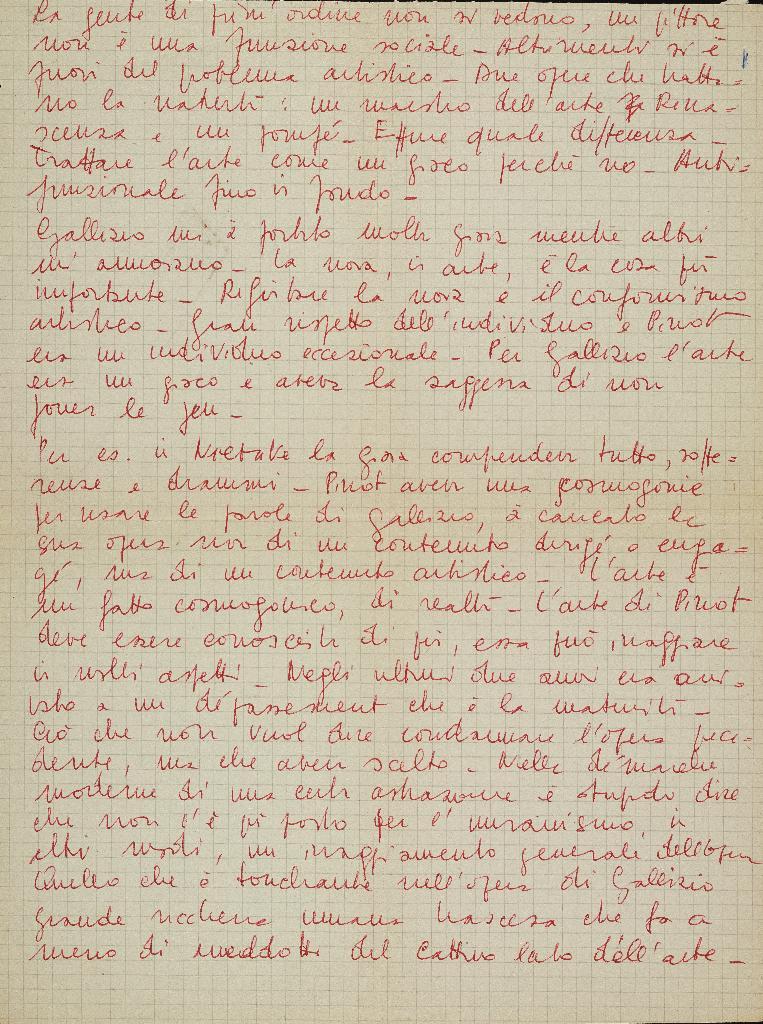 La gente di primi ordine non si vedono, un pittore
non è una funzione sociale - Altrimenti si è
fuori del problema artistico - Due opere che tratta-
no la maternità: un maestro dell'arte Rena-
scenza e un pompié - Eppure quale differenza -
Trattare l'arte come un gioco perché no - Anti-
funzionale fino in fondo -
Gallizio mi à portato molta gioia mentre altri
m'annoiano - La noia, in arte, è la cosa più
importante - Rifiutare la noia e il conformismo
artistico - Gran rispetto dell'individuo e Pinot
era un individuo eccezionale - Per Gallizio l'arte
era un gioco e aveva la saggezza di non
jouer le jeu -
Per es. in la gioia comprendeva tutto, soffe-
renze e drammi - Pinot aveva una cosmogonie
per usare le parole di Gallizio, à caricato la
sua opera non di un contenuto dirigé o enga-
gé, ma di un contenuto artistico - L'arte è
un fatto cosmogonico, di realtà - L'arte di Pinot
deve essere conosciuta di più, essa può irraggiare
in molti aspetti - Negli ultimi due anni era arri-
vato a un dépassement che è la maturità -
Ciò che non vuol dire condannare l'opera prece-
dente, ma che aveva scelto - Nella démarche
moderne di una certa astrazione è stupido dire
che non c'è più posto per l'umanismo, in
altri modi, un irraggiamento generale dell'opera
Quello che è touchante nell'opera di Gallizio
grande ricchezza umana che fa a
meno di del cattivo lato dell'arte -